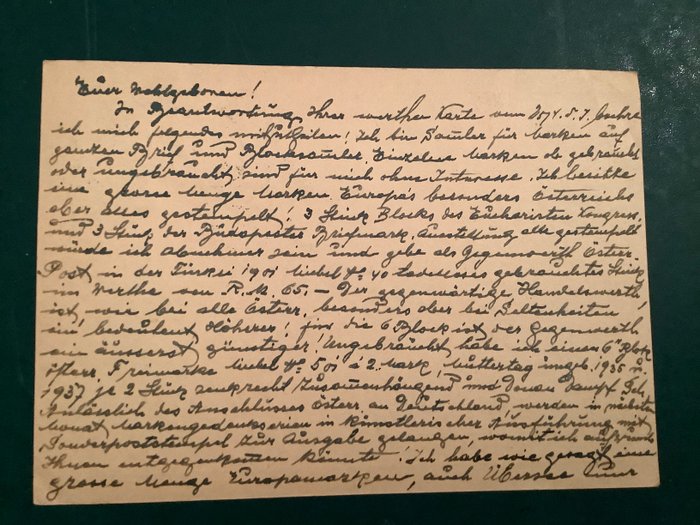 Euer Wohlgeboren!
In Beantwortung Ihrer werthen Karte vom 25/4. d. J. beehre
ich mich folgendes mitzutheilen! Ich bin Samler für Marken auf
ganzen Brief und Blocksamler. Einzelne Marken ob gebraucht
oder ungebraucht sind für mich ohne Interesse. Ich besitze
eine grosse Menge Marken Europa's besonders Österreichs
aber alles gestempelt! 3 Stück Blocks des Eucharisten Congress,
und 3 Stück der Budapester Briefmark. Ausstellung alle gestempelt
würde ich Abnehmer sein und gebe als Gegenwerth Österr.
Post in der Türkei 1901 Michel No 40 tadelloses gebrauchtes Stück
im Werthe von R.M. 65.— Der gegenwärtige Handelswerth
ist, wie bei alle Österr. besonders aber bei Seltenheiten
ein bedeutend Höherer! für die 6 Block ist der Gegenwerth
ein äusserst günstiger! Ungebraucht habe ich einen 6er Block
österr. Freimarke Michel No 501 à 2. Mark, Muttertag 1935 u.
1937 je 2 Stück senkrecht zusammenhängend und Donau Dampf.
Anlässlich des Anschlusses Österr. an Deutschland werden im nächsten
Monat Markengedenkserien in künstlerischer Ausführung mit
Sonderpoststempel zur Ausgabe gelangen, womit ich auf
Ihnen entgegenkommen könnte. Ich habe wie gesagt eine
grosse Menge Europamarken, auch Übersee nur